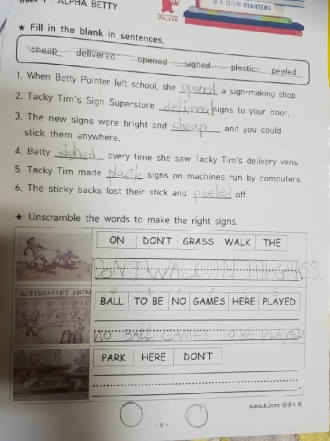 ALPHA BETTY
STARTERS
★ Fill in the blank in sentences.
cheap delivered opened sighed plastic peeled
1. When Betty Pointer left school, she opened a sign-making shop.
2. Tacky Tim's Sign Superstore delivered signs to your door.
3. The new signs were bright and cheap and you could
stick them anywhere.
4. Betty sighed every time she saw Tacky Tim's delivery vans.
5. Tacky Tim made plastic signs on machines run by computers.
6. The sticky backs lost their stick and peeled off.
★ Unscramble the words to make the right signs.
ON DON'T GRASS WALK THE
DON'T WALK ON THE GRASS.
BALL TO BE NO GAMES HERE PLAYED
NO BALL GAMES TO BE PLAYED
PARK HERE DON'T
- 5 -